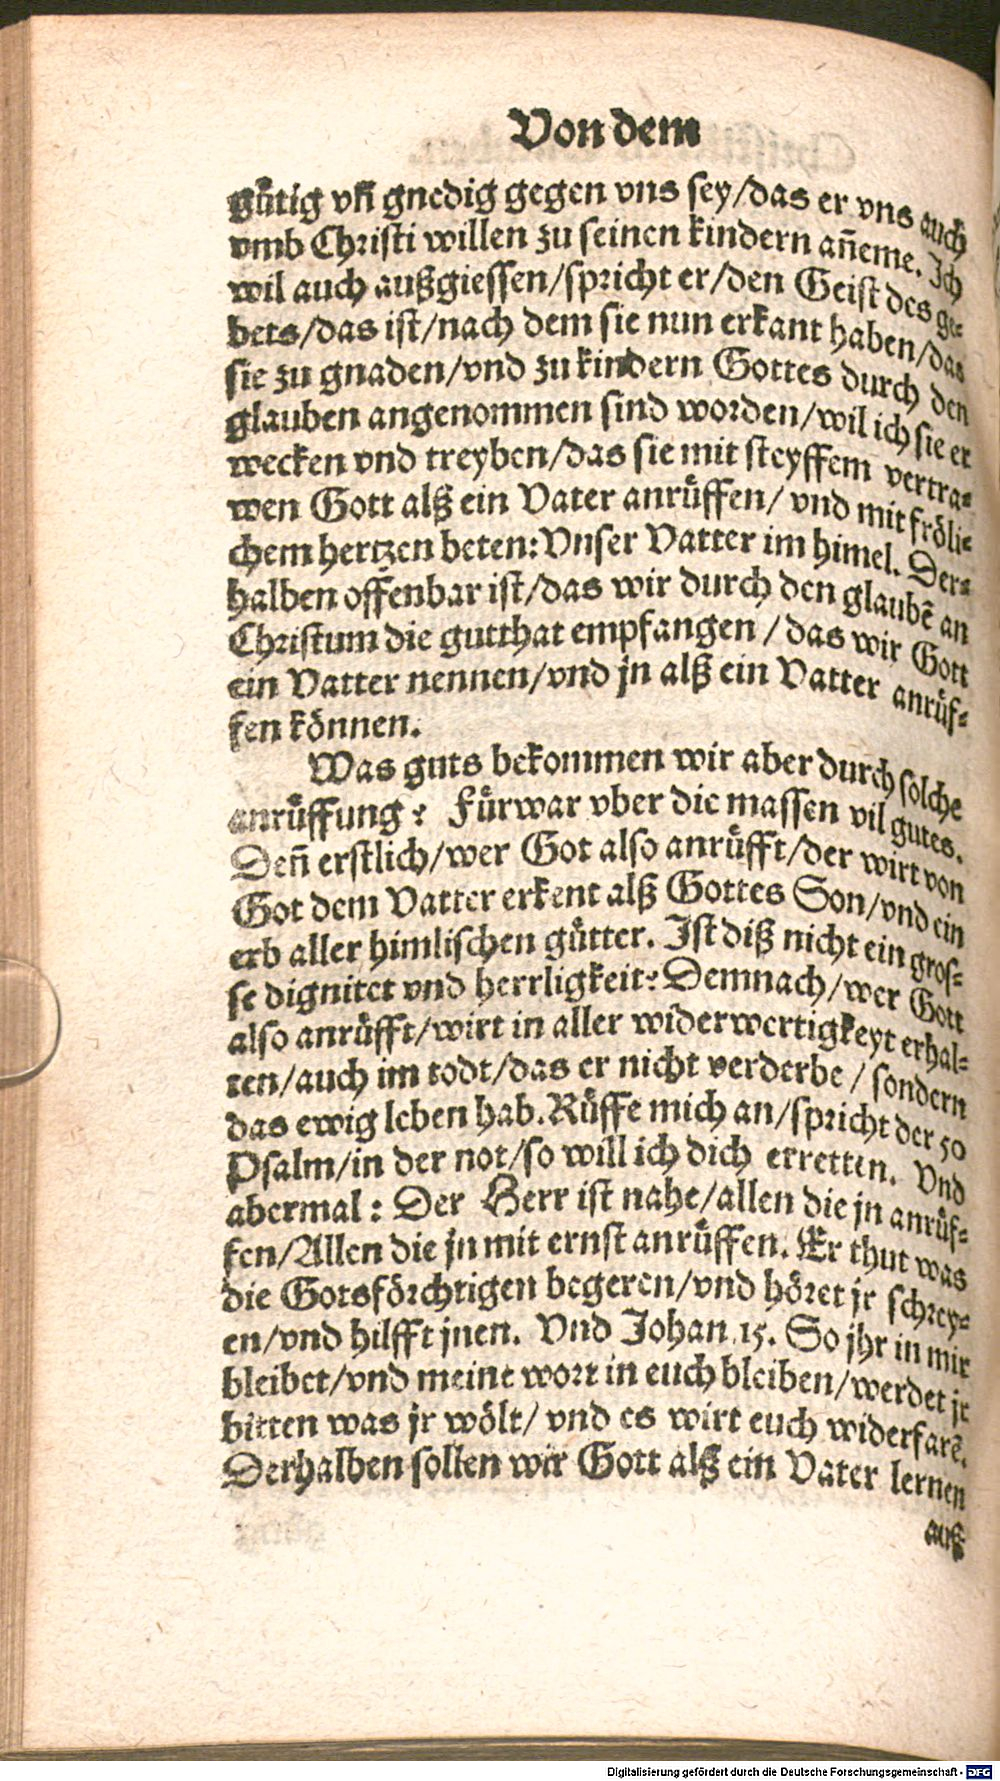 Von dem
gütig vñ gnedig gegen vns sey/das er vns auch
vmb Christi willen zu seinen kindern añeme. Ich
wil auch außgiessen/spricht er/den Geist des ge-
bets/das ist/nach dem sie nun erkant haben/das
sie zu gnaden/vnd zu kindern Gottes durch den
glauben angenommen sind worden/wil ich sie er
wecken vnd treyben/das sie mit steyffem vertra-
wen Gott alß ein Vater anrüffen/ vnd mit fröli-
chem hertzen beten: Vnser Vatter im himel. Der-
halben offenbar ist/das wir durch den glaubē an
Christum die gutthat empfangen / das wir Gott
ein Vatter nennen/vnd jn alß ein Vatter anrüf-
fen können.
Was guts bekommen wir aber durch solche
anrüffung? Fürwar vber die massen vil gutes.
Deñ erstlich/wer Got also anrüfft/der wirt von
Got dem Vatter erkent alß Gottes Son/vnd ein
erb aller himlischen gütter. Ist diß nicht ein gros-
se dignitet vnd herrligkeit? Demnach/wer Gott
also anrüfft/wirt in aller widerwertigkeyt erhal-
ten/auch im todt/das er nicht verderbe / sondern
das ewig leben hab. Rüffe mich an/spricht der 50
Psalm/in der not/so will ich dich erretten. Vnd
abermal: Der Herr ist nahe/allen die jn anrüf-
fen/Allen die jn mit ernst anrüffen. Er thut was
die Gotsförchtigen begeren/vnd höret jr schrey-
en/vnd hilfft jnen. Vnd Johan. 15. So jhr in mir
bleibet/vnd meine wort in euch bleiben/werdet jr
bitten was jr wölt/ vnd es wirt euch widerfarē.
Derhalben sollen wir Gott alß ein Vater lernen
auß
Digitalisierung gefördert durch die Deutsche Forschungsgemeinschaft - DFG